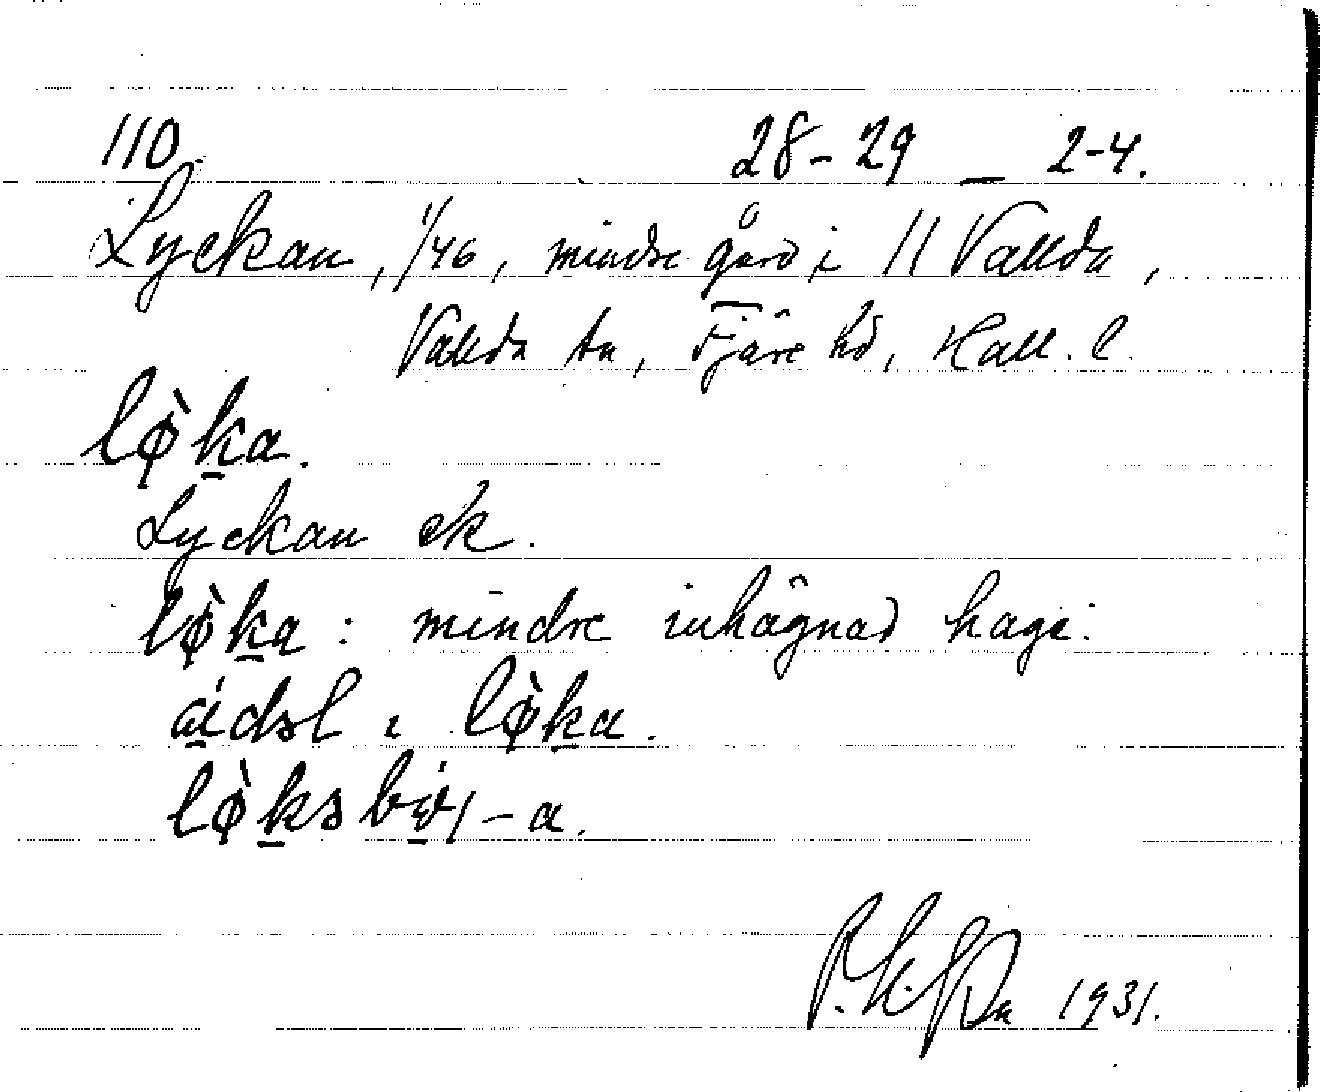 110 28-29 _ 2-4.
Lyckan, 1/46, mindre gård i 11 Vallda,
Vallda sn, Fjäre hd, Hall. l.
lø̀ka.
Lyckan ek.
lø̀ka: mindre inhägnad hage.
lø̀ka.
1931.